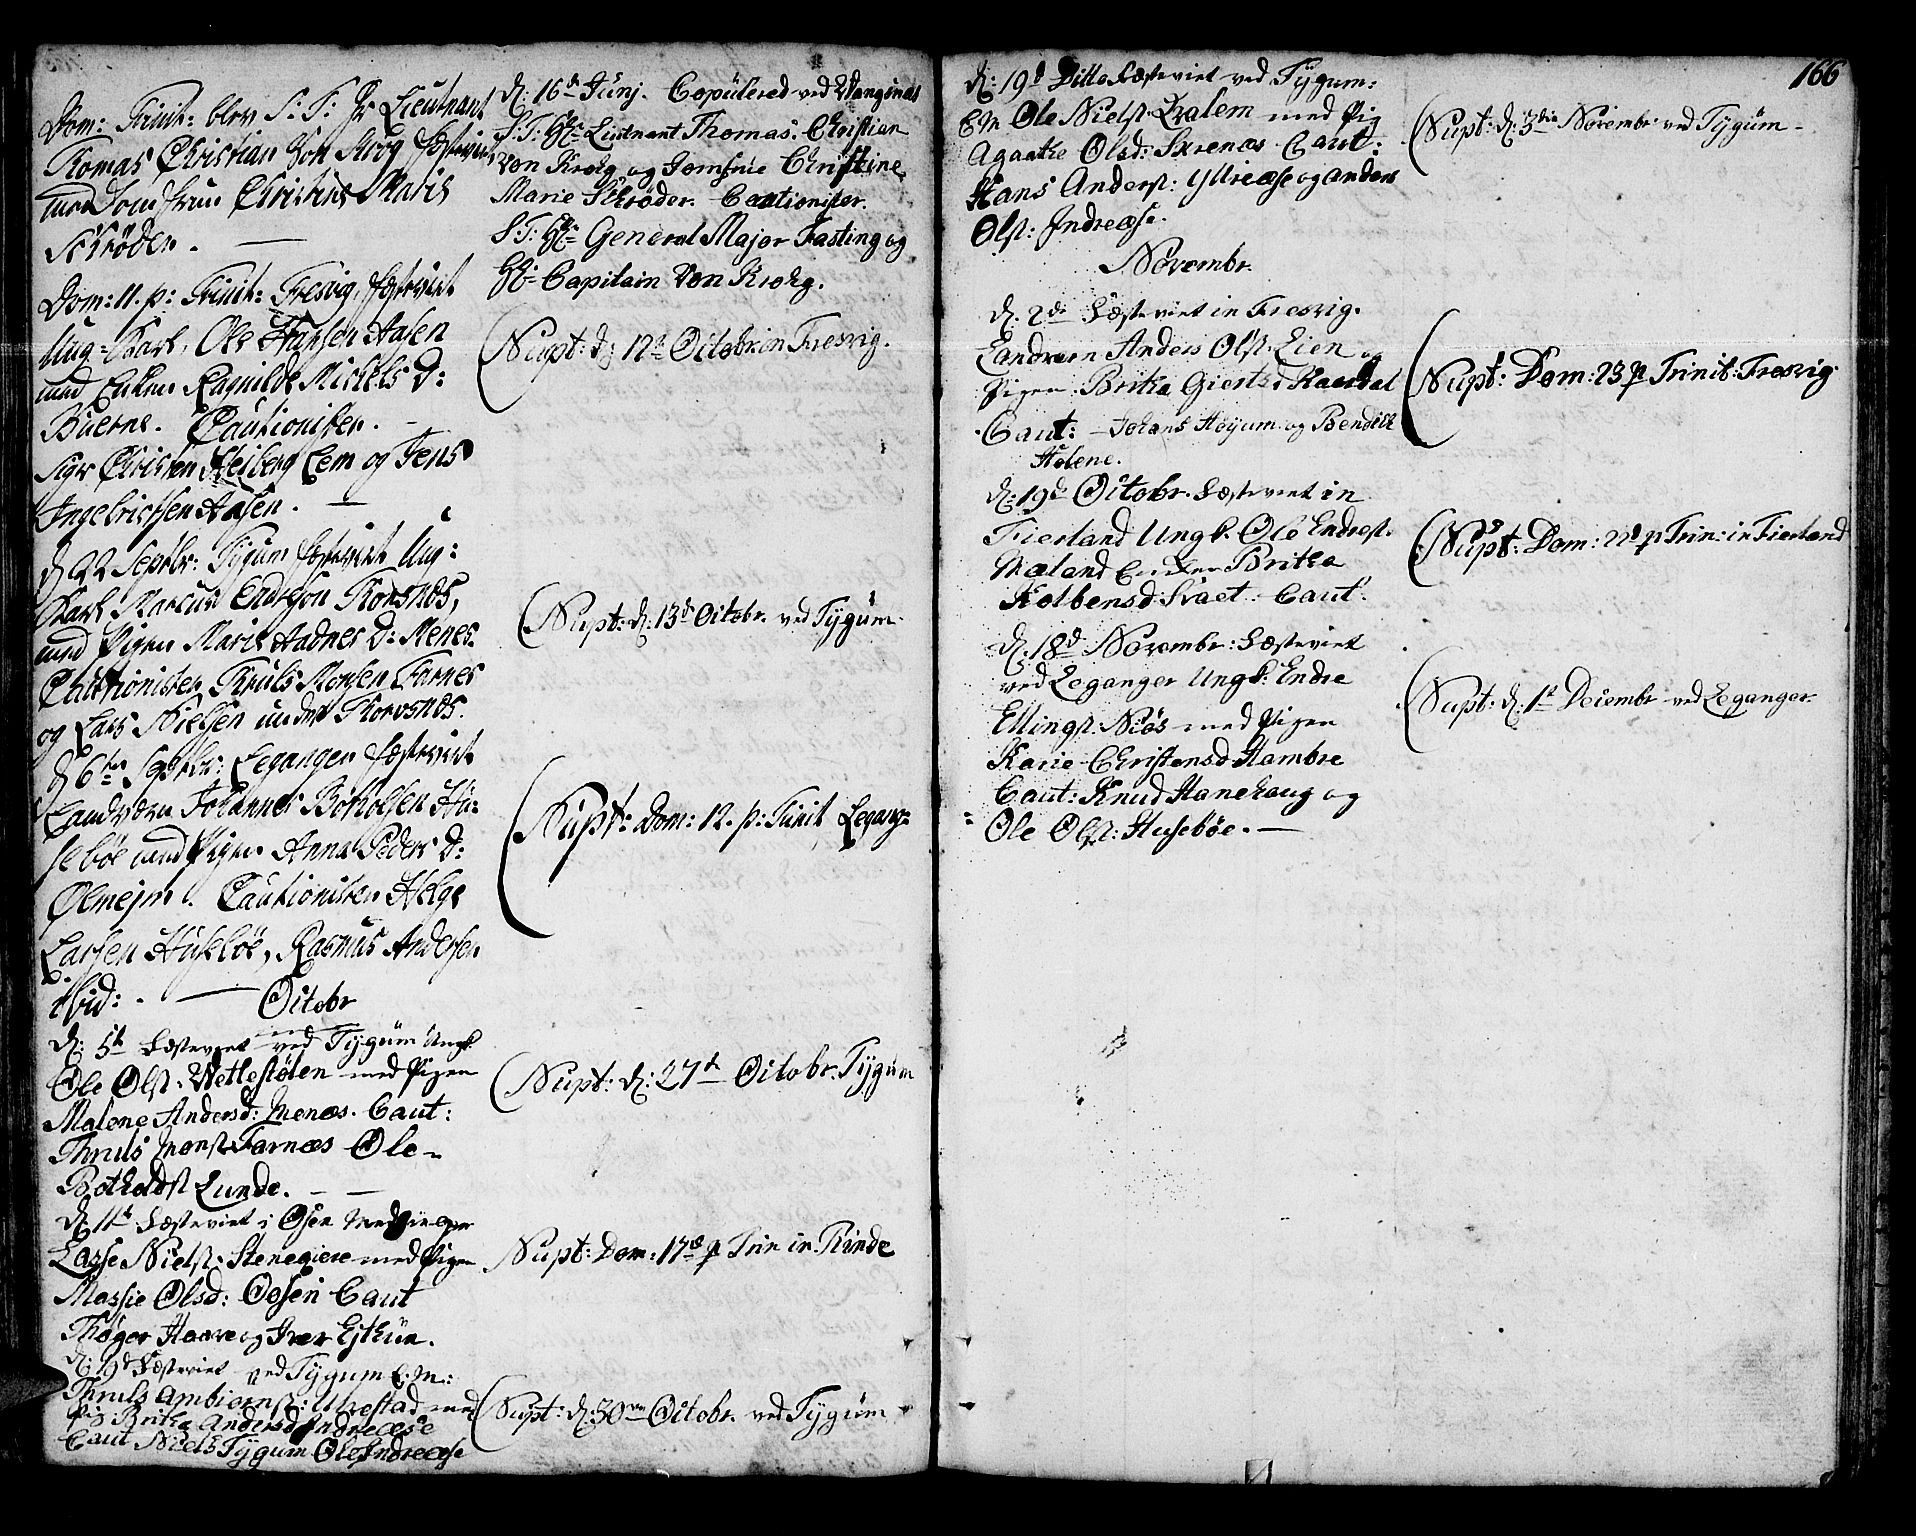 Dom: Trinit: blev S: T: Hr Lieutnant
Thomas Christian Von Krog fæstviet
med Jomfrue Christine Marie
Schrøder.
Dom: 11. p: Trinit: Fresvig, fæstviet
Ung-Karl, Ole Hansen Aasen
med Enken Ragnilde Michels D:
Buerne. Cautionister.
Sigr Christen Heiberg Lem og Jens
Ingebrictsen Aasen.
d 22 Septbr: Tygum fæstviet Ung:
Karl Marcus Endreson Korsnæs,
med Pigen Marie Aadnes D: Menes.
Cautionister, Thruls Monsen Farnes
og Lars Nielsen
d 6te Septbr: Leganger fæstviet
Landværn Johannes Botholsen Hu-
sebøe med Pigen Anna Peders D:
Ølmejm. Cautionister Helge
Larsen Husebøe, Rasmus Andersen
ibid:.
Octobr
d: 5t Fæsteviet ved Tygum Ungk.
Ole Olst. Vettestølen med Pigen
Malene Andersd: Menæs. Caut:
Thruls Monst Farnæs Ole
Botholdst Lunde.
d: 11t Fæsteviet i Osen
Lasse Nielst: Stenegiere med Pigen
Massie Olsd: Oesen Caut
Thøger Haare og Iver Esthun.
d: 19d Fæsteviet ved Tygum E. M:
Thruls Ambiørnst: Ugrestad med
Pig Britha Andersd Indreeæse
Caut Niels Tygum Ole Indreeæse
d: 16d Junj. Copulered ved Vangsnæs
S: T: Hr Lieutnant Thomas Christian
Von Krohg og Jomfrue Christeine
Marie Schrøder. Cautionister.
S: T: Hr General Major Fasting og
Hr Capitain Von Krohg.
Nupt: d: 12d Octobr: in Fresvig.
Nupt: d: 13d Octobr. ved Tygum.
Nupt: Dom: 12. p: Trinit Legang:
Nupt: d: 27d Octobr. Tygum
Nupt: Dom: 17d p Trin in Rinde
Nupt: d: 30 Octobr. ved Tygum
166
d: 19d Ditto Fæsteviet ved Tygum:
E M Ole Nielst. Qvalem med Pig
Agaathe Olsd: Skrenæs Caut:
Hans Anderst: Yttreæse og Anders
Olst: Indreæse.
Novembr.
d. 2d Fæsteviet in Fresvig.
Landværn Anders Olst. Lien og
Pigen Britha Giertsd Kaardal
Caut: Johans Høyum og Bendix
Holene.
d: 19d Octobr. Fæsteviet in
Fierland Ungk. Ole Endrest.
Mæland Enken Britha
Kolbensd Svaet. Caut.
d. 18d Novembr: Fæsteviet
ved Leganger Ungk. Endre
Ellingst. Niøs med Pigen
Karie Christensd Hambre
Caut: Knud Hanehaug og
Ole Olst: Husebøe.
Nupt: d: 3die Novembr ved Tygum
Nupt: Dom: 23 p Trinit: Fresvig
Nupt: Dom: 22d p Trin: in Fierland
Nupt: d: 1t Decembr ved Leganger.